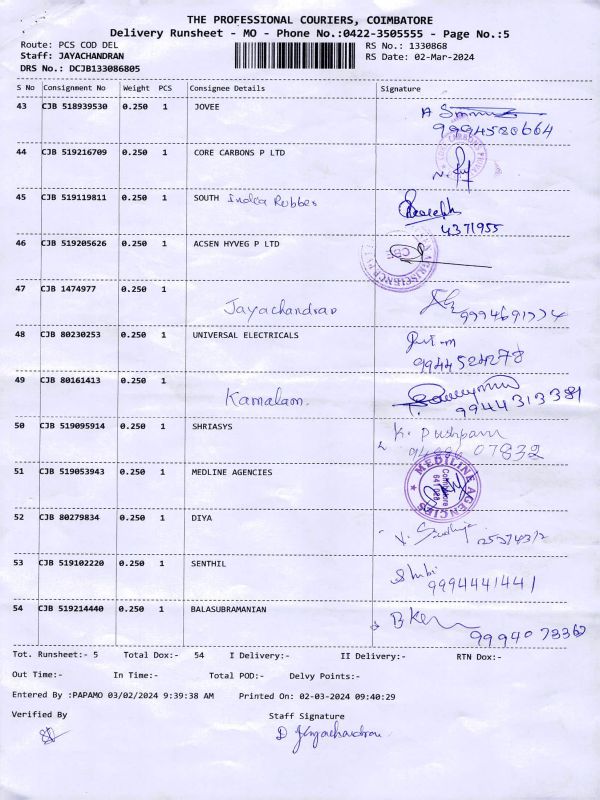 THE PROFESSIONAL COURIERS, COIMBATORE
Delivery Runsheet - MO - Phone No.:0422-3505555 - Page No.:5
Route: PCS COD DEL RS No.: 1330868
Staff: JAYACHANDRAN RS Date: 02-Mar-2024
DRS No.: DCJB133086805
S No Consignment No Weight PCS Consignee Details Signature
43 CJB 518939530 0.250 1 JOVEE
9994580664
44 CJB 519216709 0.250 1 CORE CARBONS P LTD
45 CJB 519119811 0.250 1 SOUTH India Rubber
4371955
46 CJB 519205626 0.250 1 ACSEN HYVEG P LTD
47 CJB 1474977 0.250 1
Jayachandran
48 CJB 80230253 0.250 1 UNIVERSAL ELECTRICALS
9944524278
49 CJB 80161413 0.250 1
Kamalam.
9944313381
50 CJB 519095914 0.250 1 SHRIASYS K. Pushpam
07832
51 CJB 519053943 0.250 1 MEDLINE AGENCIES
MEDILINE AGENCIES
Coimbatore
52 CJB 80279834 0.250 1 DIYA
53 CJB 519102220 0.250 1 SENTHIL
Shibi
9994441441
54 CJB 519214440 0.250 1 BALASUBRAMANIAN
Tot. Runsheet:- 5 Total Dox:- 54 I Delivery:- II Delivery:- RTN Dox:-
Out Time:- In Time:- Total POD:- Delvy Points:-
Entered By :PAPAMO 03/02/2024 9:39:38 AM Printed On: 02-03-2024 09:40:29
Verified By Staff Signature
D Jeyachandran